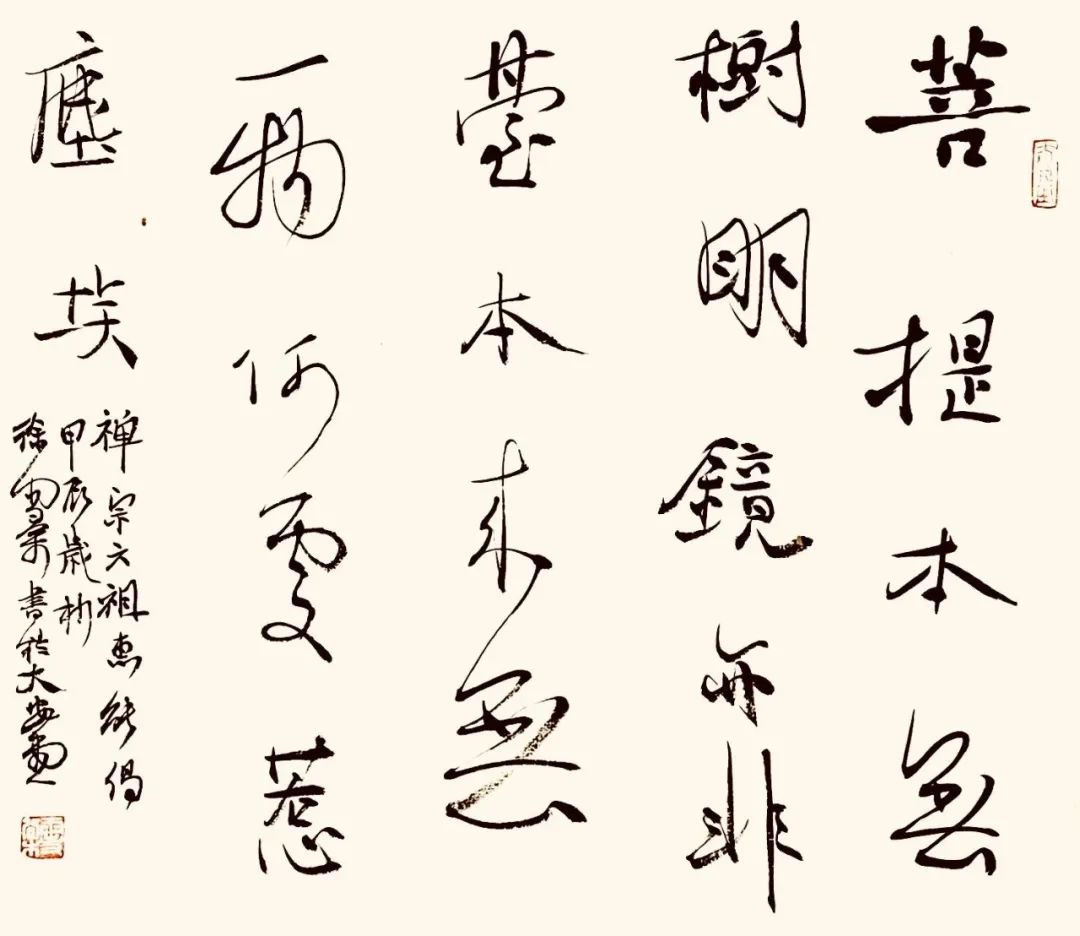 菩提本無
樹明鏡亦非
臺本來無
一物何處惹
塵埃
禪宗六祖惠能偈
甲辰歲
徐雪書於大